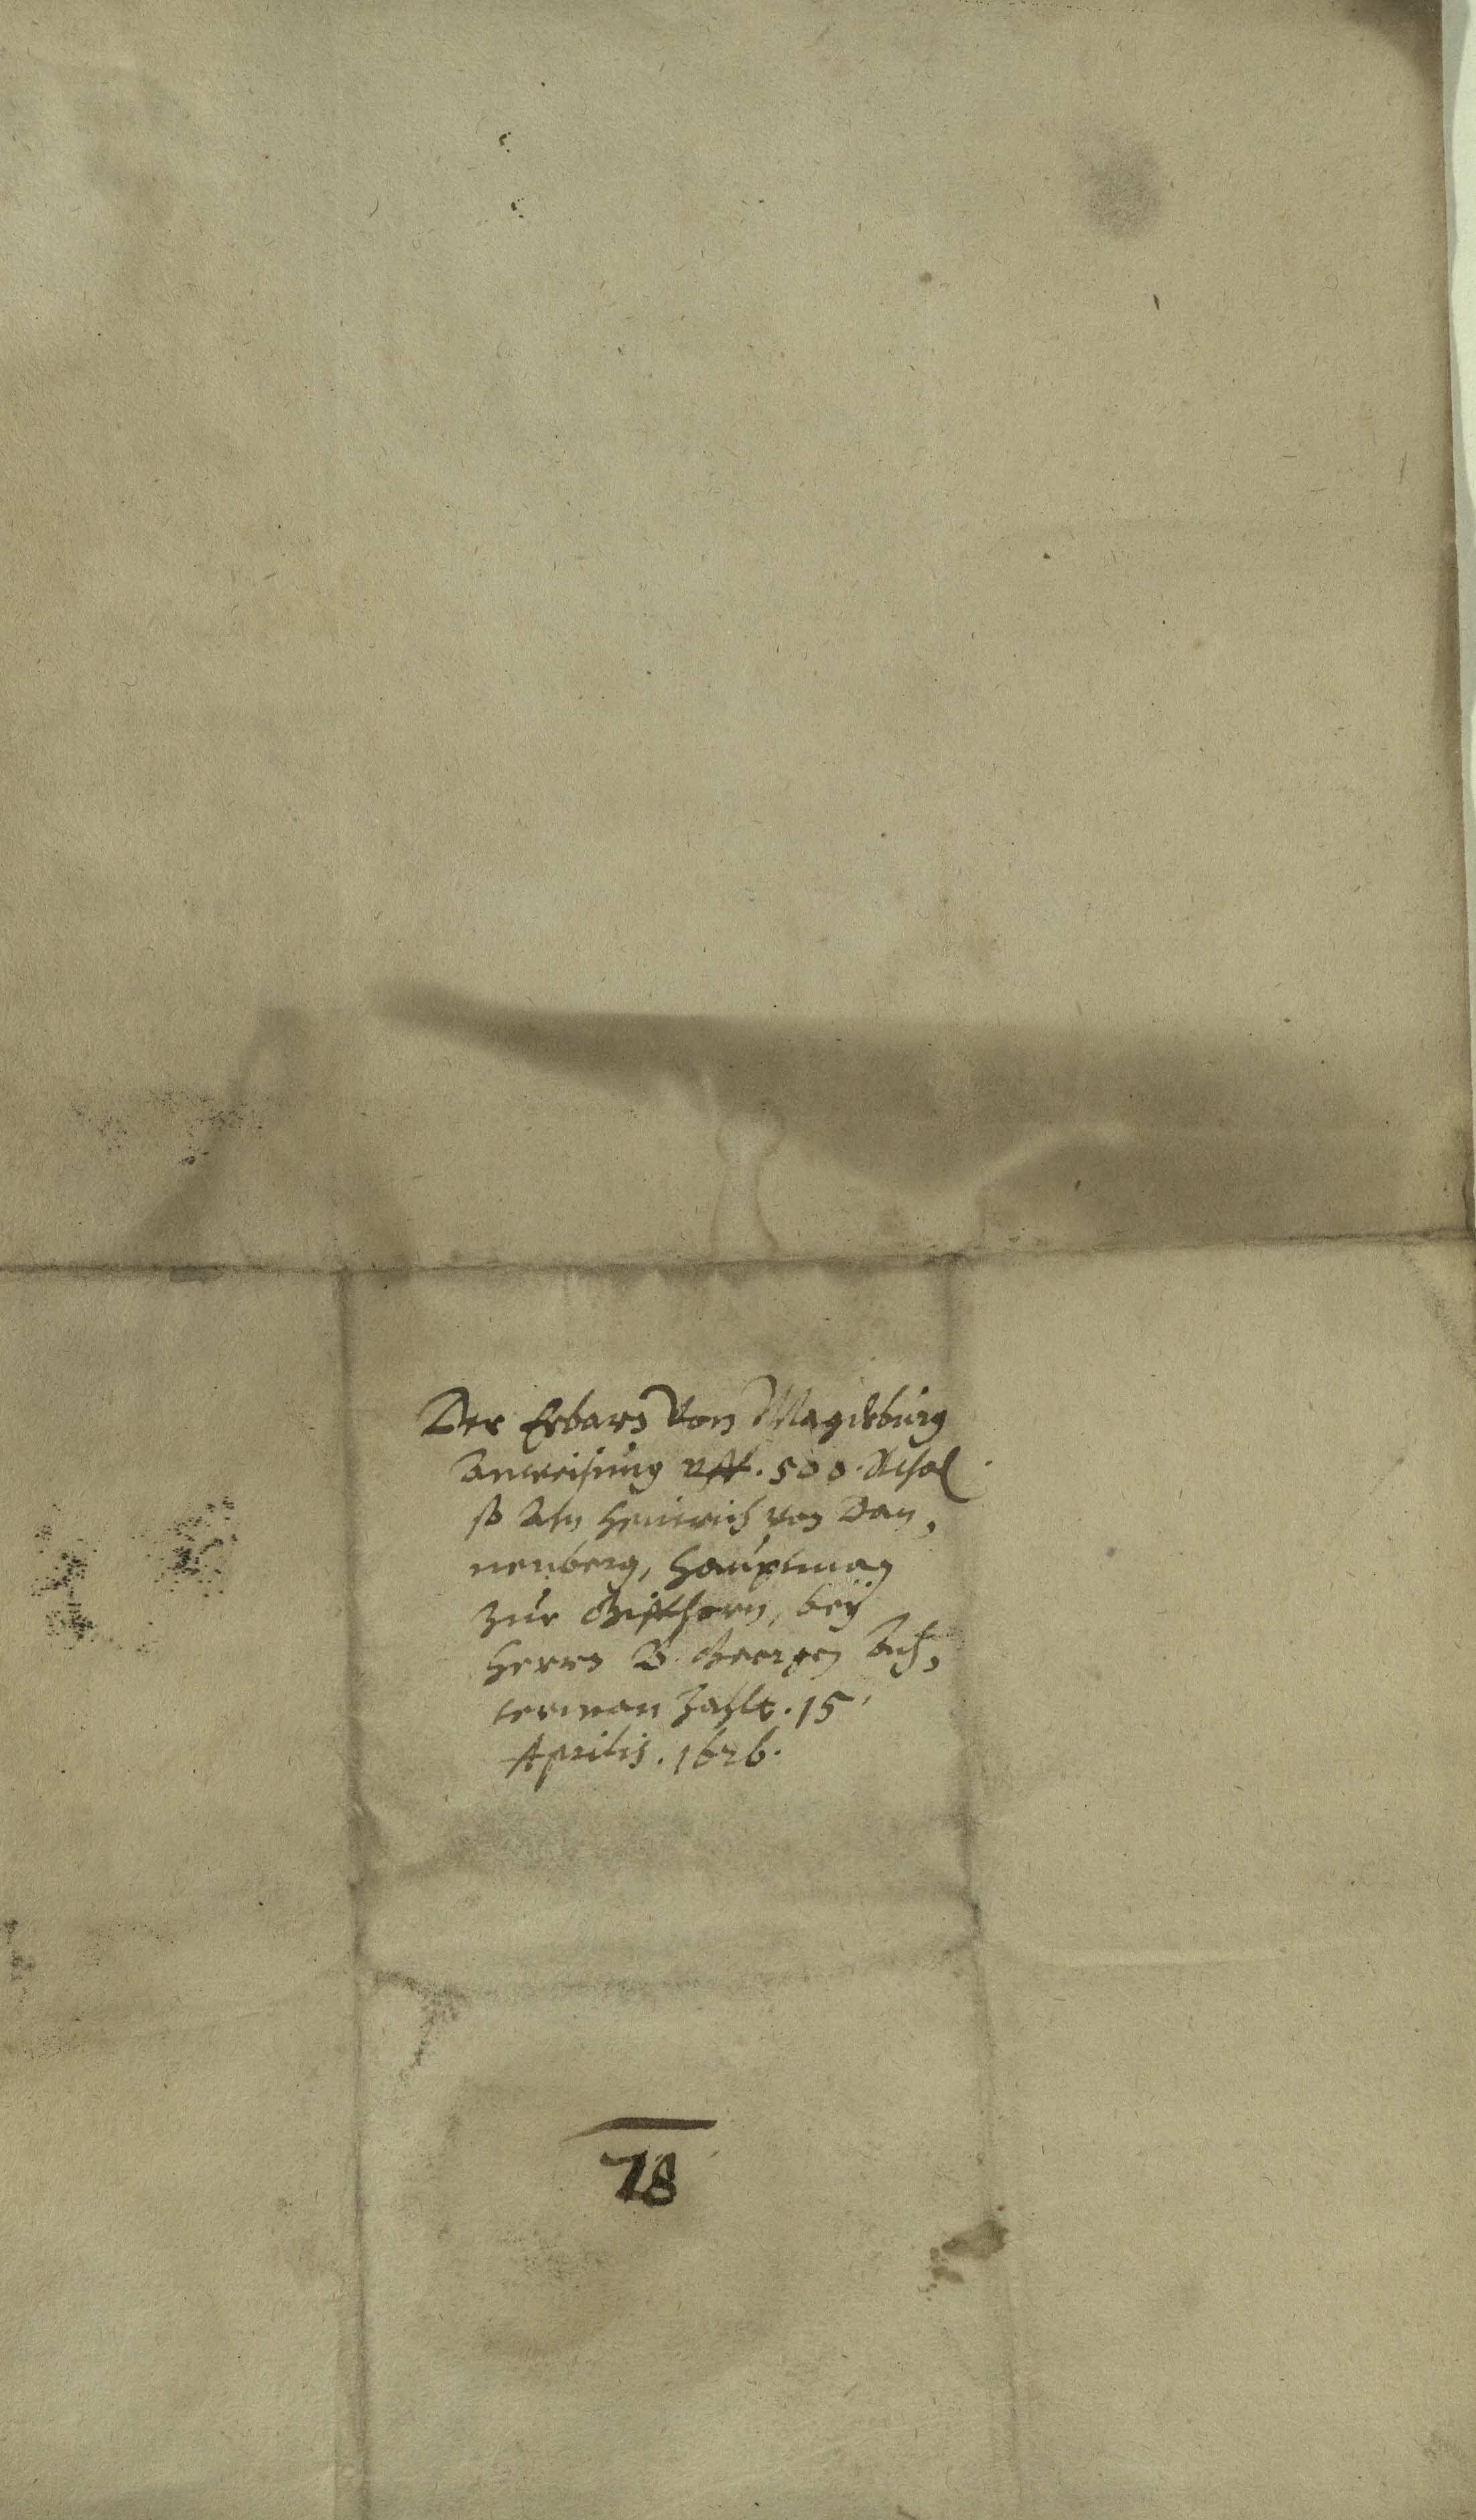 Der Erbarn von Magdeburg
Anweisung uff. 500. Rthal
so Ahn Heinrich von Dan,
nenberg, Hauptman
zur Giffhorn, bey
Herrn B. Georgen Ach,
terman Zahlt. 15
Aprilis. 1626.
78